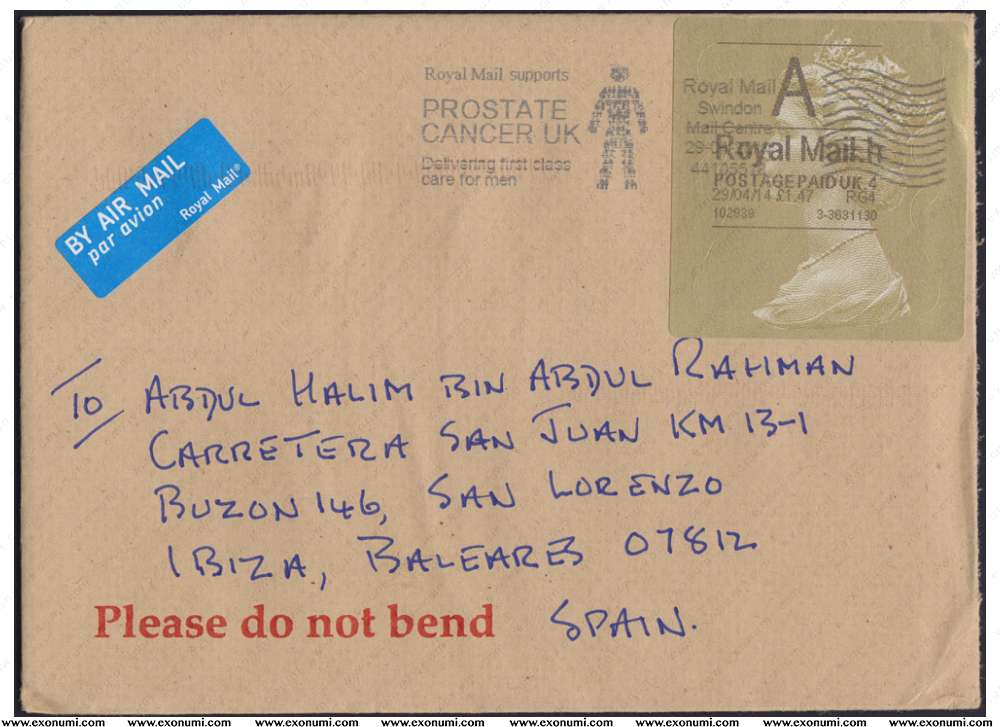 Royal Mail supports
PROSTATE
CANCER UK
Delivering first class
care for men
Royal Mail
Swindon
Mail Centre
A
Royal Mail h
POSTAGE PAID UK 4
29/04/14 £1.47 RG4
102939 3-3631130
BY AIR MAIL
par avion
Royal Mail®
TO ABDUL HALIM BIN ABDUL RAHMAN
CARRETERA SAN JUAN KM 13-1
BUZON 146, SAN LORENZO
IBIZA, BALEARES 07812
SPAIN.
Please do not bend
www.exonumi.com www.exonumi.com www.exonumi.com www.exonumi.com www.exonumi.com www.exonumi.com www.exonumi.com www.exonumi.com